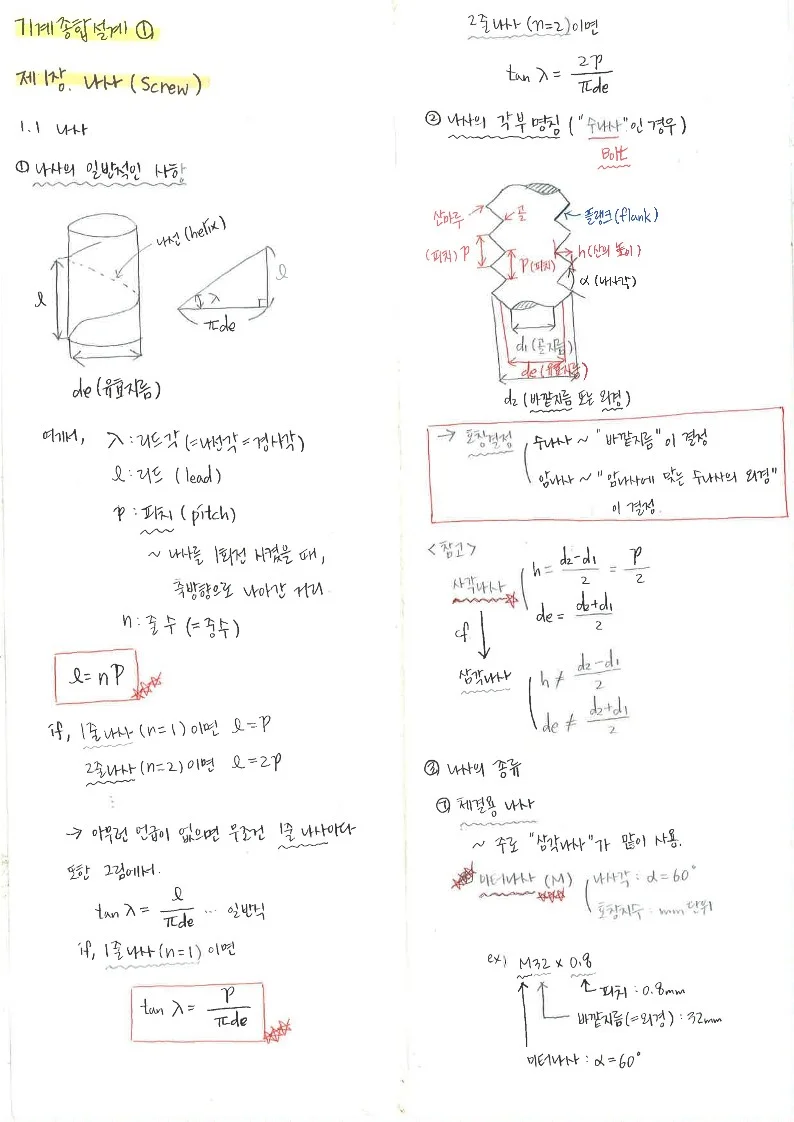 기계종합설계 ①
제1장. 나사 (Screw)
1.1 나사
① 나사의 일반적인 사항
나선 (helix)
l
λ
l
πde
de (유효지름)
여기서, λ : 리드각 (=나선각 = 경사각)
l : 리드 (lead)
p : 피치 (pitch)
~ 나사를 1회전 시켰을 때,
축방향으로 나아간 거리
n : 줄 수 (= 중수)
l = np
if, 1줄나사 (n=1) 이면 l = p
2줄나사 (n=2) 이면 l = 2p
⋮
→ 아무런 언급이 없으면 무조건 1줄 나사이다
또한 그림에서.
tan λ = l / πde … 일반식
if, 1줄나사 (n=1) 이면
tan λ = p / πde
2줄나사 (n=2) 이면
tan λ = 2p / πde
② 나사의 각부 명칭 ("수나사"인 경우)
Bolt
산마루
골
플랭크 (flank)
(피치) p
p (피치)
h (산의 높이)
α (나사각)
d1 (골지름)
de (유효지름)
d2 (바깥지름 또는 외경)
→ 호칭결정
수나사 ~ "바깥지름"이 결정
암나사 ~ "암나사에 맞는 수나사의 외경"
이 결정.
<참고>
사각나사
h = d2-d1 / 2 = p / 2
de = d2+d1 / 2
cf
삼각나사
h ≠ d2-d1 / 2
de ≠ d2+d1 / 2
③ 나사의 종류
㉠ 체결용 나사
~ 주로 "삼각나사"가 많이 사용.
미터나사 (M)
나사각 : α = 60°
호칭치수 : mm 단위
ex) M32 x 0.8
피치 : 0.8mm
바깥지름(=외경) : 32mm
미터나사 : α = 60°